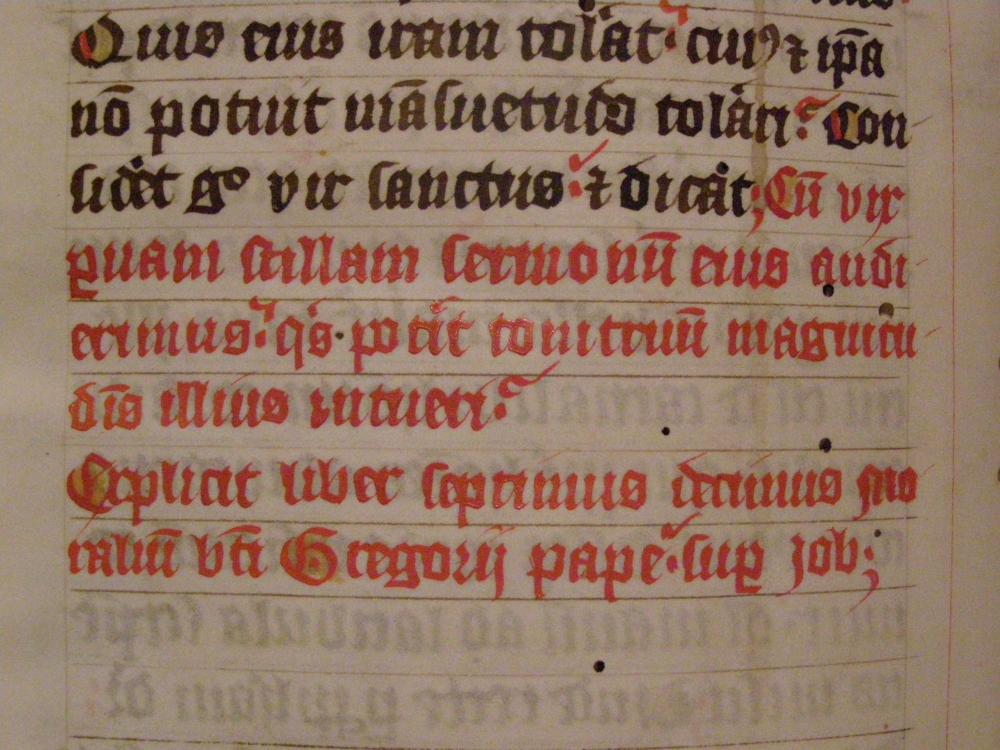 Quis eius iram tolꝰat· cuiꝰ ⁊ ip̄a
nō potuit māsuetudo tolꝰari· Con
sidꝰet gͦ vir sanctus· ⁊ dicat; Cū vix
ꝑuam stillam sermonū eius audi
erimus· qͥs· potꝰit tonitruū magnitu
dīs illius intueri·
Explicit liber septimus decimus mo
raliū bt̄i Gregorij pape· suꝑ Job;